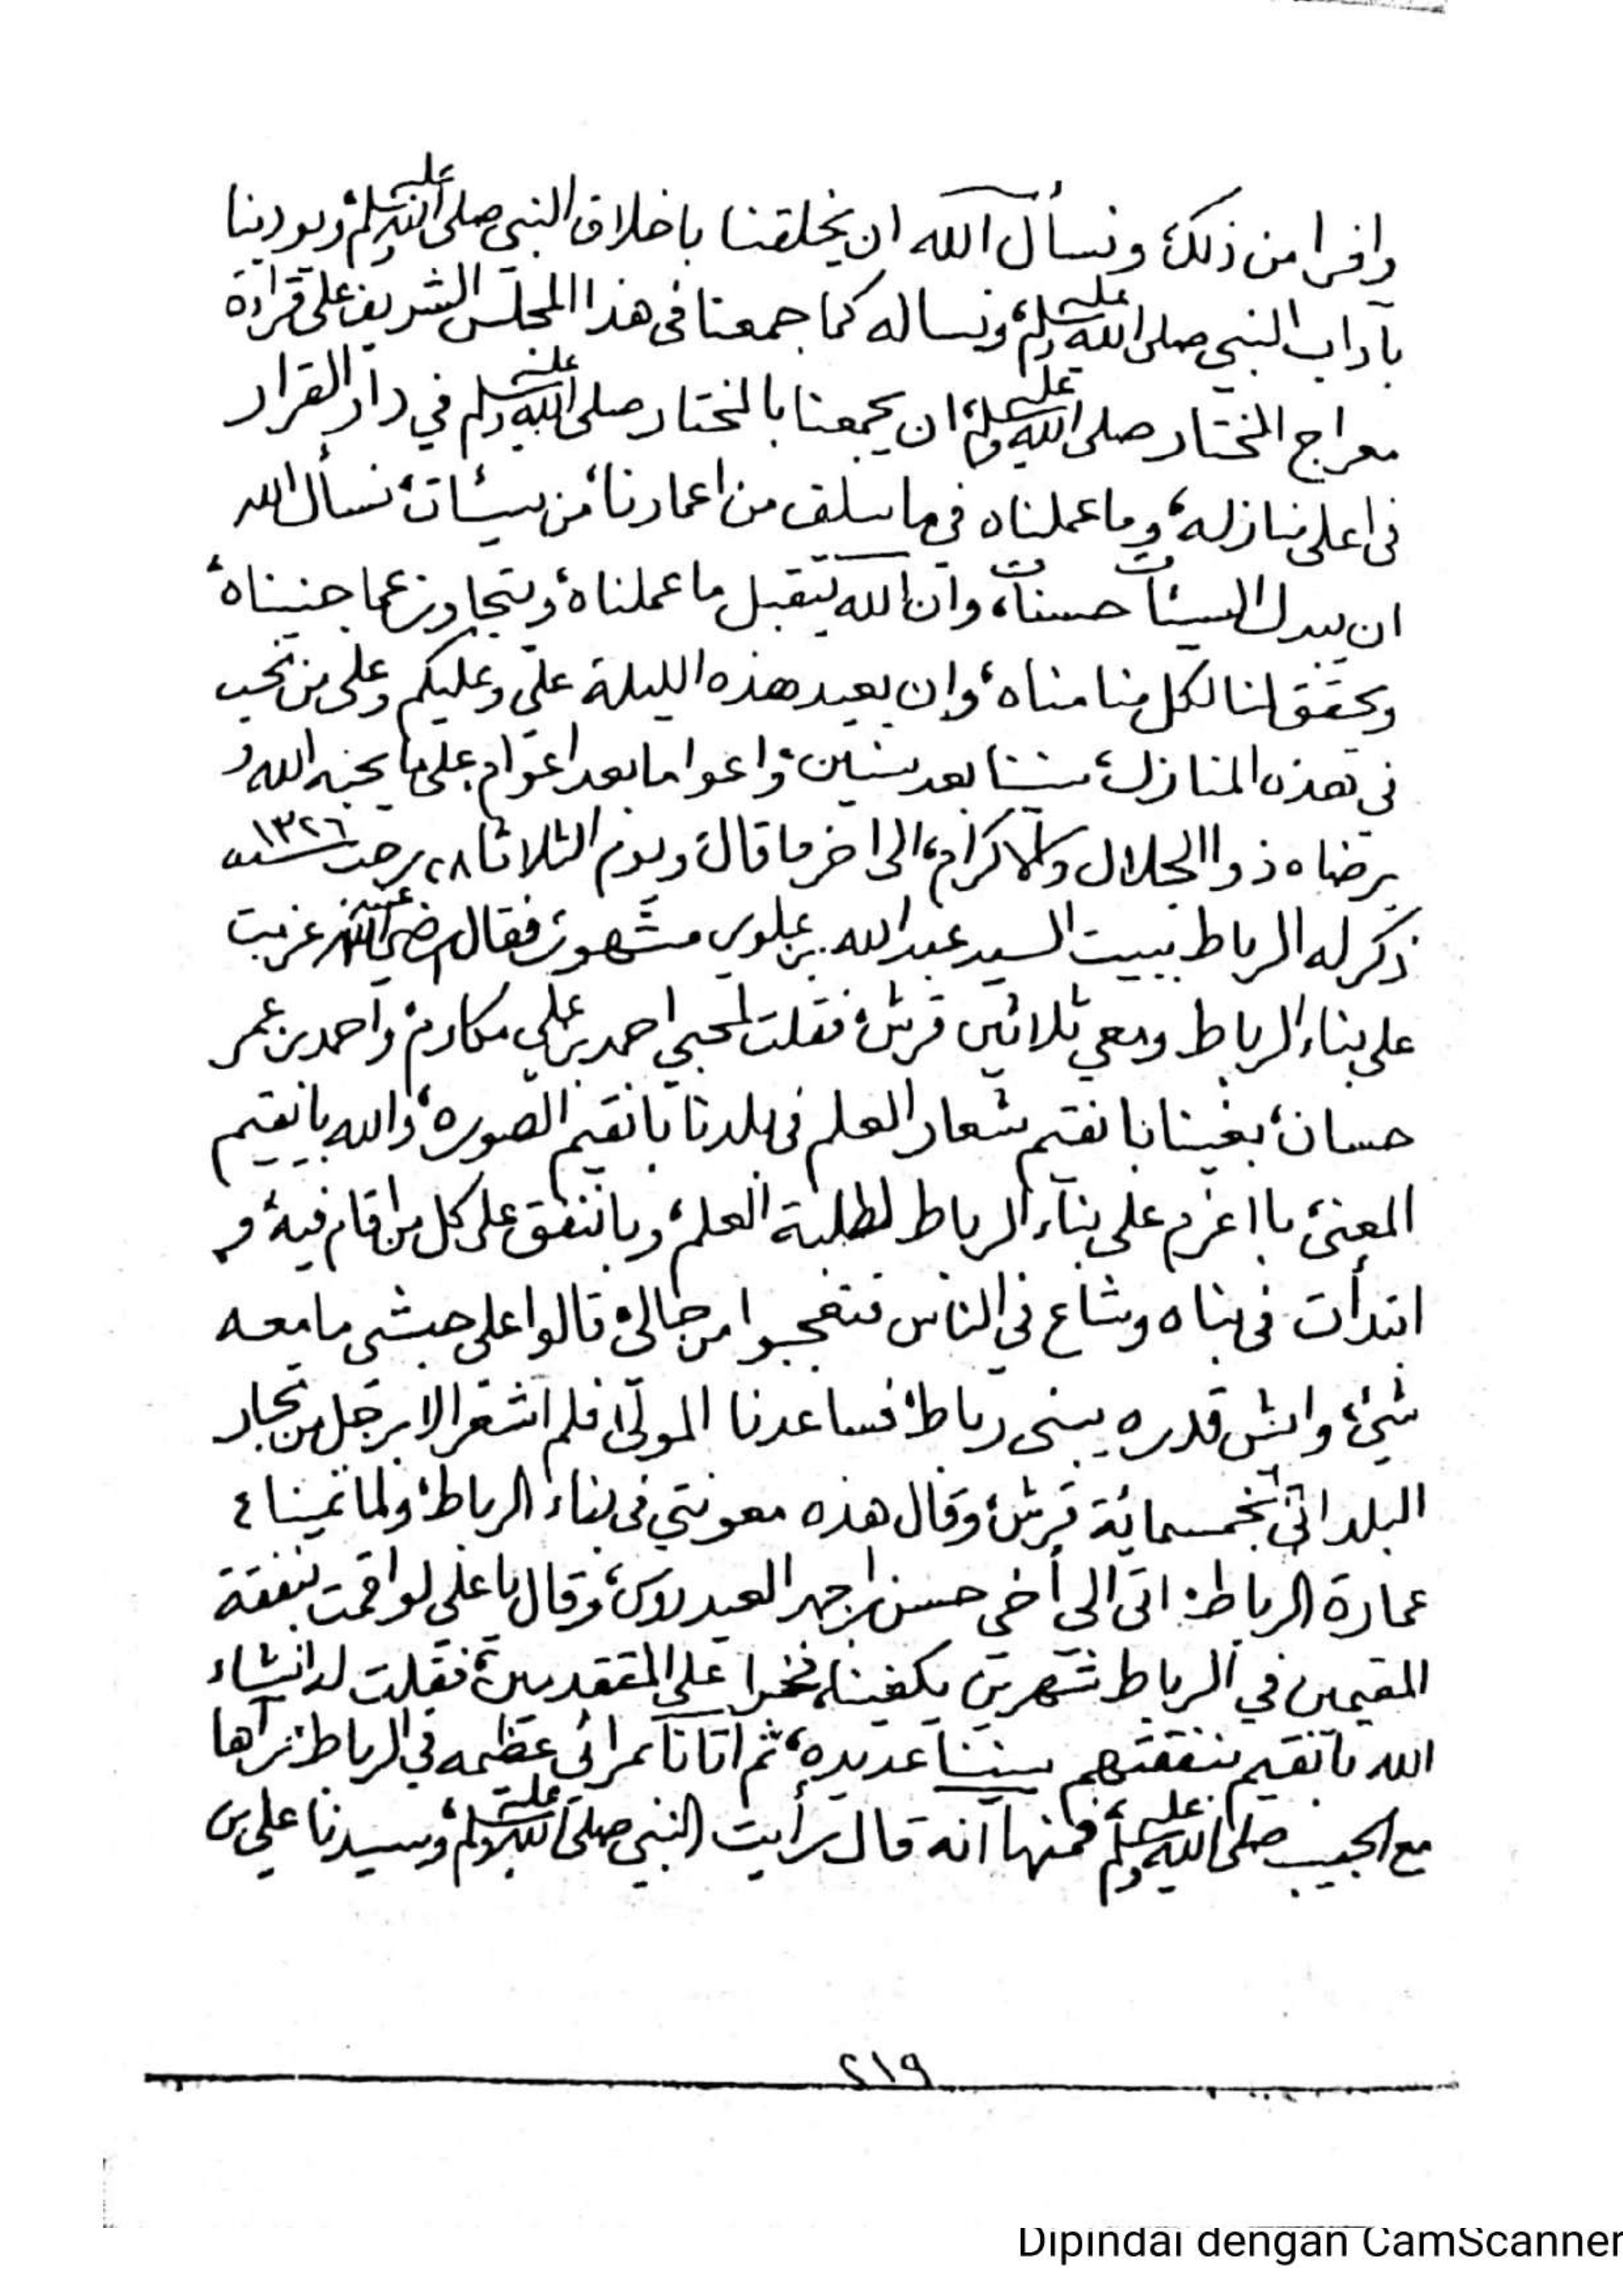 وافرا من ذلك، ونسأل الله ان يخلقنا باخلاق النبي صلى الله عليه وسلم، ويودبنا
بآداب النبي صلى الله عليه وسلم، ونساله كما جمعنا فى هذا المجلس الشريف على قراءة
معراج المختار صلى الله عليه وسلم، ان يجمعنا بالمختار صلى الله عليه وسلم في دار القرار
فى اعلى منازله، وما عملناه في ما سلف من اعمارنا، من سيئات، نسأل الله
ان يبدل السيئات حسنات، وان الله يتقبل ما عملناه، ويتجاوز عما جنيناه،
ويحقق لنا لكل منا مناه، وان يعيد هذه الليلة علي وعليكم وعلى من نحب
في هذه المنازل، سنينا بعد سنين، واعواما بعد اعوام، على ما يحبه الله و
يرضاه ذوا الجلال والاكرام، الى اخر ما قال، ويوم الثلاثا ٢٨ رجب سنة ١٣٢٦
ذكر له الرباط ببيت السيد عبد الله بن علوي مشهور، فقال رضي الله عنه عزمت
على بناء الرباط ومعي ثلاثين قرش، فقلت لمحبي احمد بن علي مكارم، واحمد بن عمر
حسان، بغينا با نقيم شعار العلم فى بلدنا با نقيم الصوره، والله با يقيم
المعنى، با اعزم على بناء الرباط لطلبة العلم، وبا ننفق على كل من اقام فيه، و
ابتدأت فى بناه وشاع في الناس فتعجبوا من حالي، قالوا علي حبشي ما معه
شيء، وايش قدره يبنى رباط، فساعدنا المولى، فلم اشعر الا برجل من تجار
البلد اتى بخمسمائة قرش، وقال هذه معونتي فى بناء الرباط، ولما تمينا ٤
عمارة الرباط، اتى الى أخي حسن بن احمد العيدروس، وقال يا علي لو اقمت بنفقة
المقيمين في الرباط شهرين يكفينا، فخرا على المتقدمين، فقلت له انشاء
الله با نقيم بنفقتهم سنينا عديده، ثم اتانا بمرائي عظيمه في الرباط، نراها
مع الحبيب صلى الله عليه وسلم، فمنها انه قال رأيت النبي صلى الله عليه وسلم، وسيدنا علي بن
٢١٩
Dipindai dengan CamScanner